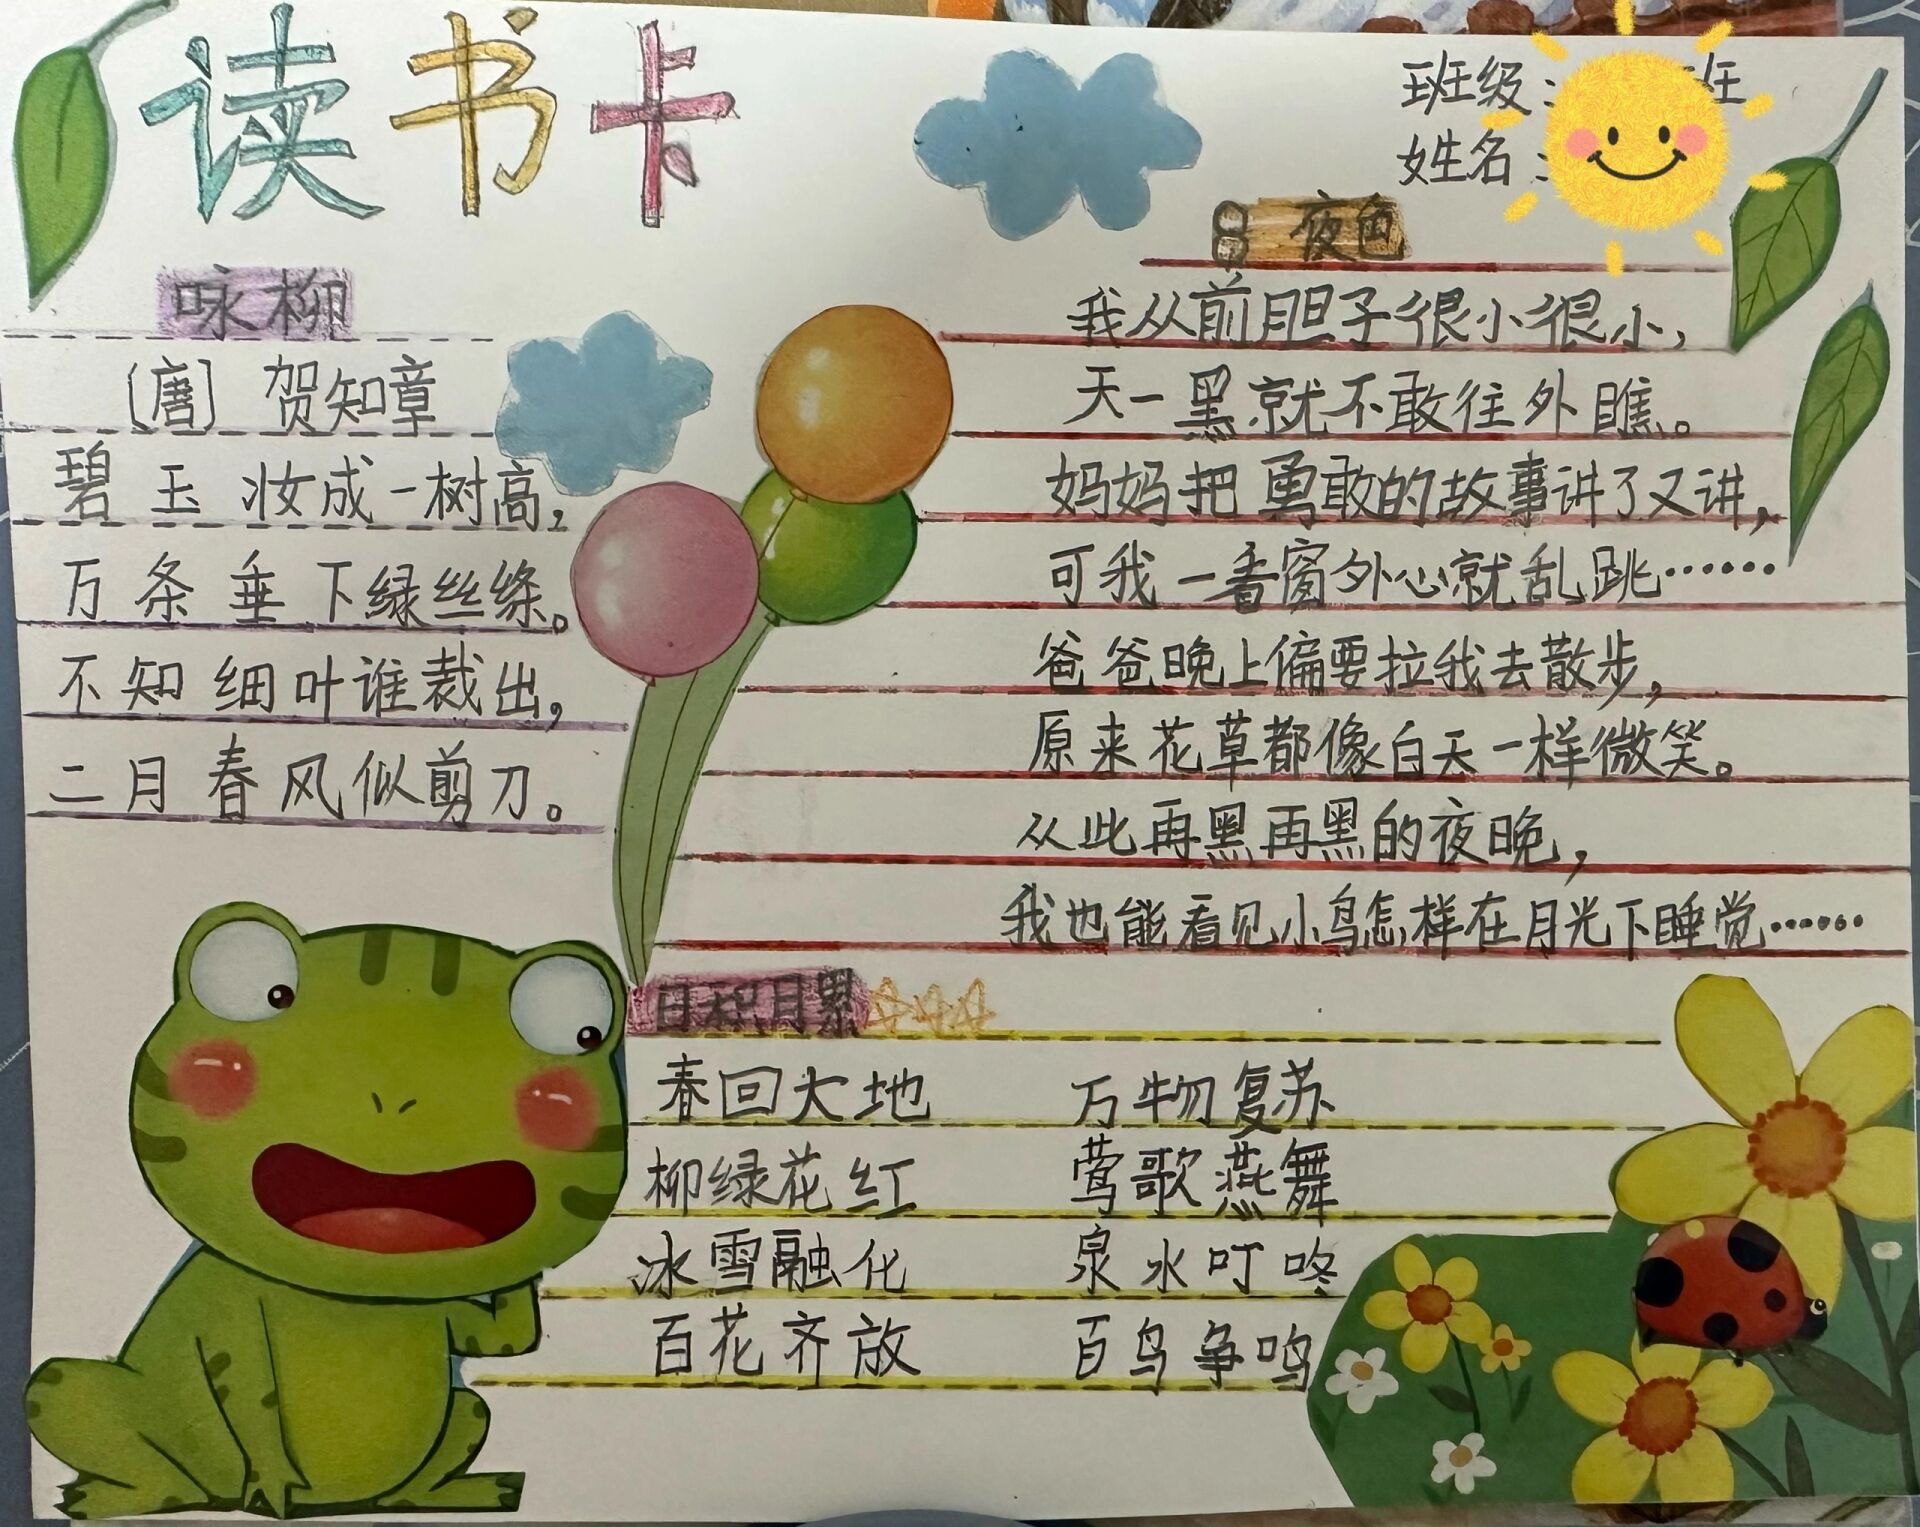 读书卡
班级：班
姓名：
咏柳
〔唐〕 贺知章
碧玉妆成一树高，
万条垂下绿丝绦。
不知细叶谁裁出，
二月春风似剪刀。
8 夜色
我从前胆子很小很小，
天一黑就不敢往外瞧。
妈妈把勇敢的故事讲了又讲，
可我一看窗外心就乱跳……
爸爸晚上偏要拉我去散步，
原来花草都像白天一样微笑。
从此再黑再黑的夜晚，
我也能看见小鸟怎样在月光下睡觉……
日积月累
春回大地 万物复苏
柳绿花红 莺歌燕舞
冰雪融化 泉水叮咚
百花齐放 百鸟争鸣